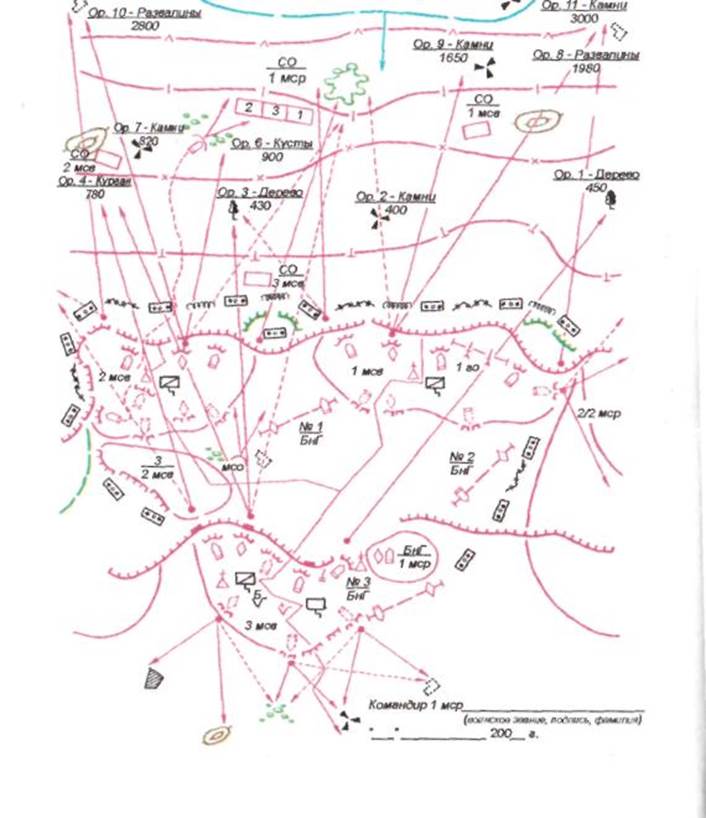 Ор. 10 - Развалины
2800
Ор. 11 - Камни
3000
Ор. 9 - Камни
1650
Ор. 8 - Развалины
1980
СО
1 мср
2 3 1
СО
1 мсв
Ор. 7 - Камни
820
Ор. 6 - Кусты
900
СО
2 мсв
Ор. 4 - Курган
780
Ор. 3 - Дерево
430
Ор. 2 - Камни
400
Ор. 1 - Дерево
450
СО
3 мсв
2 мсв
1 мсв
1 го
2/2 мср
№ 1
БнГ
3
2 мсв
мсо
№ 2
БнГ
БнГ
1 мср
№ 3
БнГ
Б
3 мсв
Командир 1 мср
(воинское звание, подпись, фамилия)
"__"__________ 200__ г.